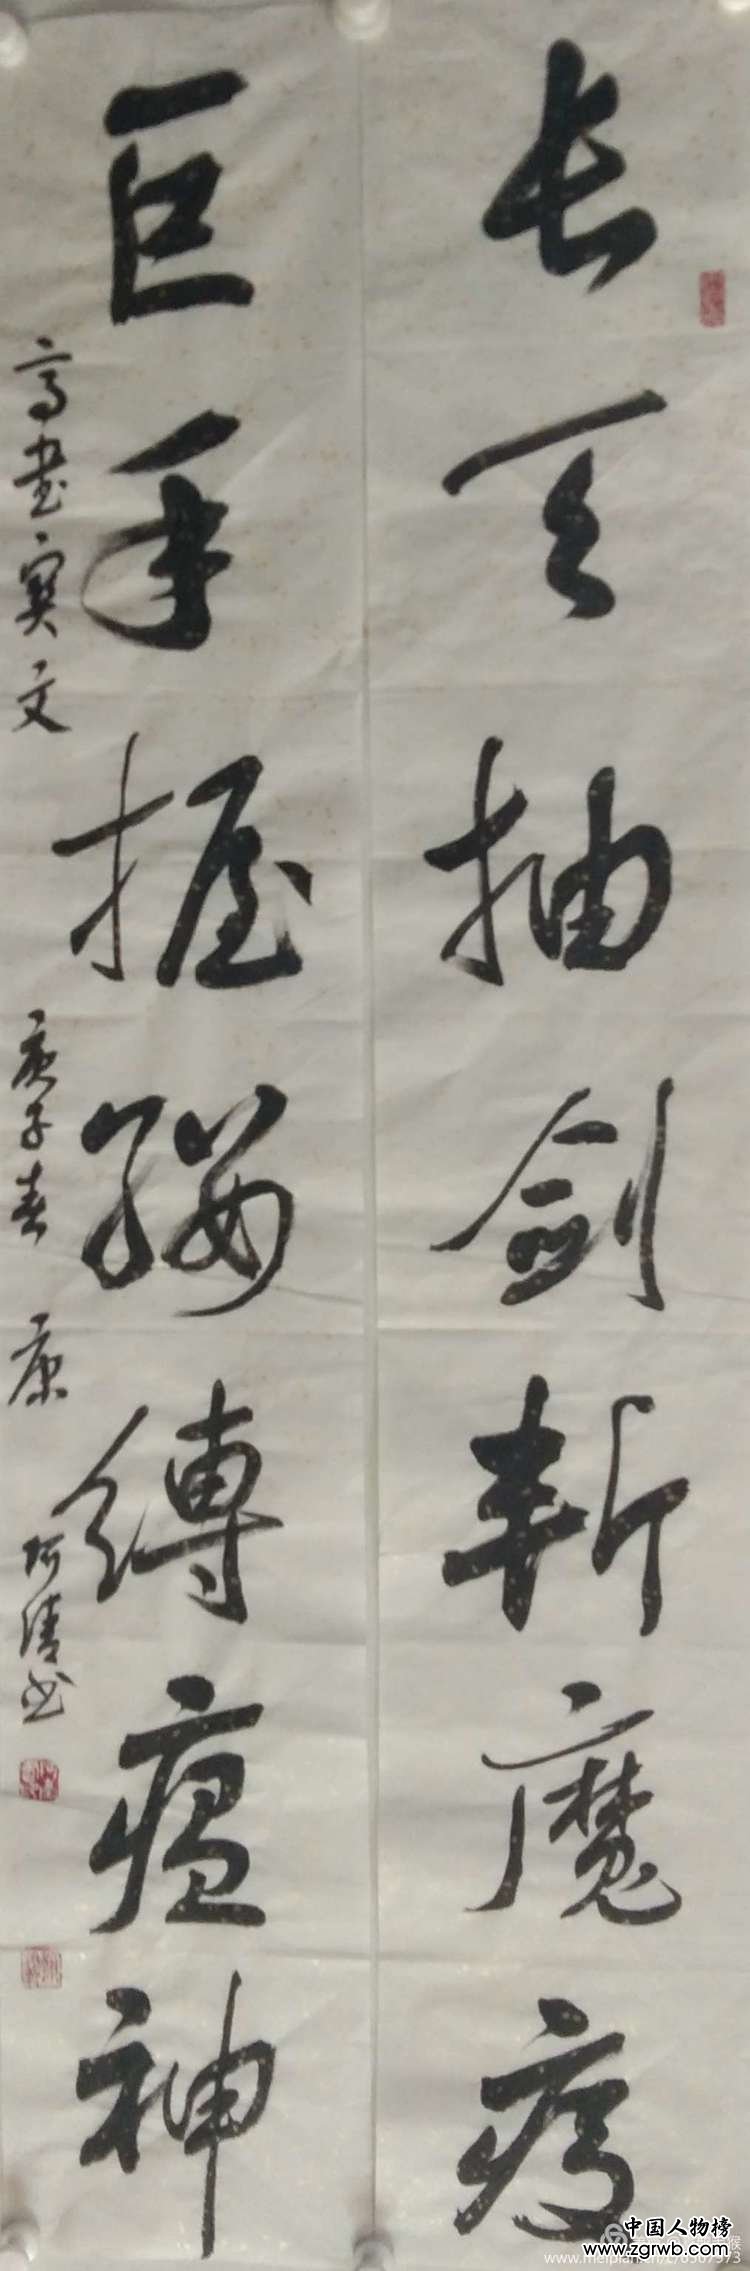 长天抽剑斩魔疫
巨手握缨缚瘟神
高書寞文
庚子春 康阿清书
中国人物榜
www.zgrwb.com